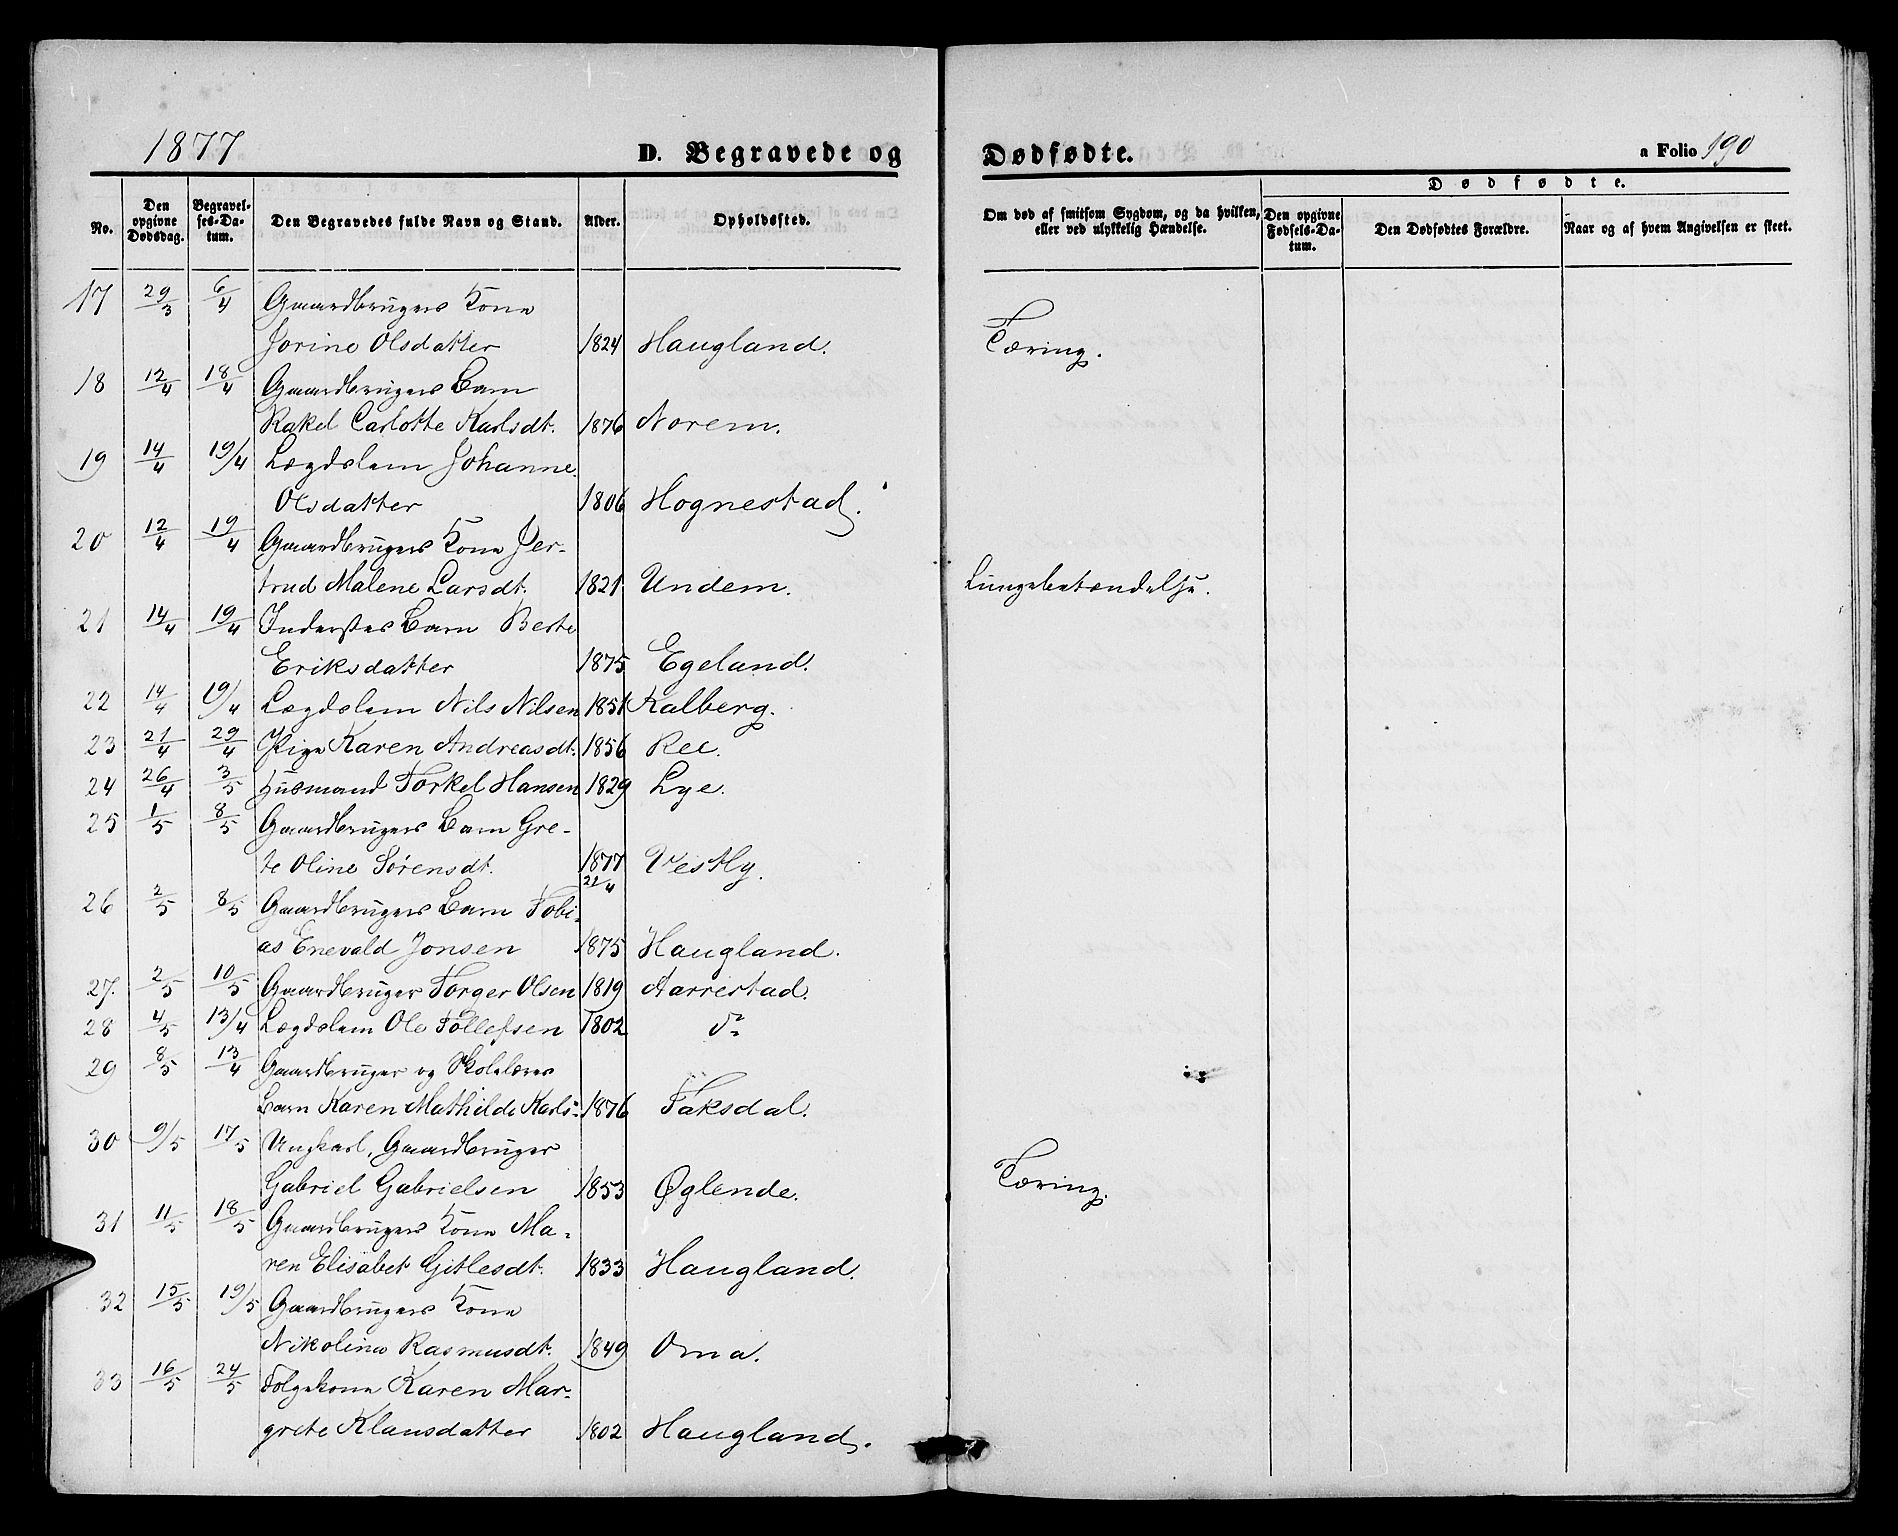 1877
D. Begravede og Dødfødte.
a Folio 190
No.
Den opgivne Dødsdag.
Begravelses-Datum.
Den Begravedes fulde Navn og Stand.
Alder.
Opholdssted.
Om død af smitsom Sygdom, og da hvilken, eller ved ulykkelig Hændelse.
Dødfødte.
Den opgivne Fødsels-Datum.
Den Dødfødtes Forældre.
Naar og af hvem Angivelsen er skeet.
17 29/3 6/4 Gaardbrugers Kone
Jorine Olsdatter 1824 Haugland. Tæring.
18 12/4 18/4 Gaardbrugers Barn
Rakel Carlotte Karlsdt. 1876 Norem.
19 14/4 19/4 Lægdslem Johanne
Olsdatter 1806 Hognestad.
20 12/4 19/4 Gaardbrugers Kone Jer-
trud Malene Larsdt. 1821 Undem. Lungebetændelse.
21 14/4 19/4 Inderstes Barn Berte
Eriksdatter 1875 Egeland.
22 14/4 19/4 Lægdslem Nils Nilsen 1851 Kalberg.
23 21/4 29/4 Pige Karen Andreasdt. 1856 Ree.
24 26/4 3/5 Husmand Torkel Hansen 1829 Lye.
25 1/5 8/5 Gaardbrugers Barn Gre-
te Oline Sørensdt. 1877 21/4 Vestly.
26 2/5 8/5 Gaardbrugers Barn Tobi-
as Enevald Jonsen 1875 Haugland.
27. 2/5 10/5 Gaardbruger Torger Olsen 1819 Aarrestad.
28 4/5 13/4 Lægdslem Ole Tollefsen 1802 do
29 8/5 13/4 Gaardbruger og Skolelærer
Barn Karen Mathilde Karls- 1876 Taksdal.
30 9/5 17/5 Ungkarl, Gaardbruger
Gabriel Gabrielsen 1853 Øglende. Tæring.
31 11/5 18/5 Gaardbrugers Kone Ma-
ren Elisabet Gitlesdt. 1833 Haugland.
32 15/5 19/5 Gaardbrugers Kone
Nikolina Rasmusdt. 1849 Oma.
33 16/5 24/5 Folgekone Karen Mar-
grete Klausdatter 1802 Haugland.